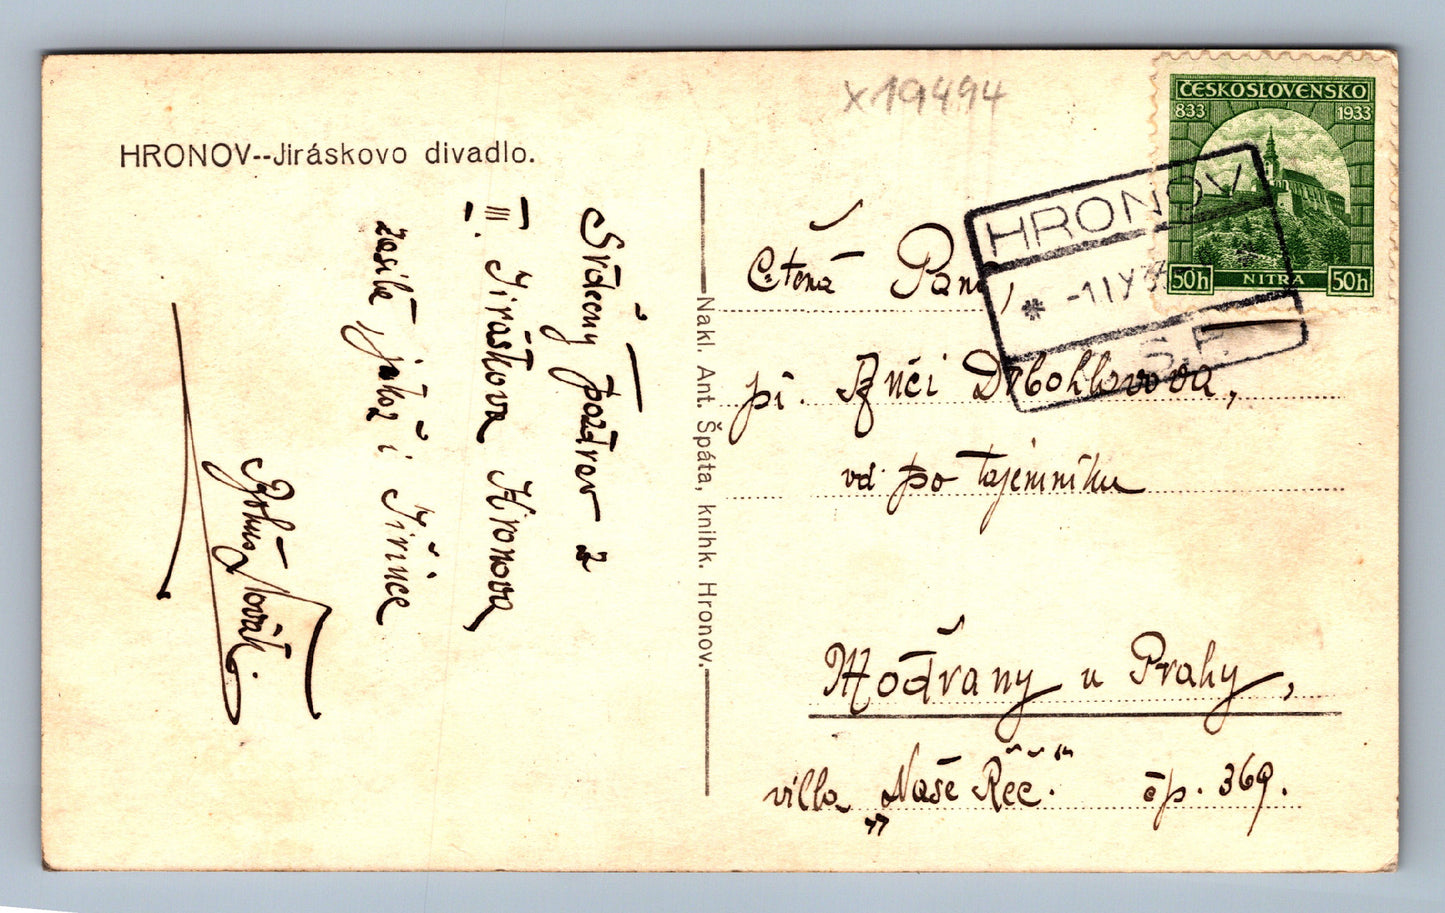 x 19494
HRONOV--Jiráskovo divadlo.
ČESKOSLOVENSKO
833 1933
50h NITRA 50h
HRONOV
* -1 IX 33 *
Srdečný pozdrav z
III. Jiráskova Hronova
zasílá jakož i Jiřince
Bohuš Novák.
Nakl. Ant. Špáta, knihk. Hronov.
Ctěná Paní,
pí. Drbohlavova,
vd. po tajemníku
Modřany u Prahy,
villa „Naše Řeč“. čp. 369.